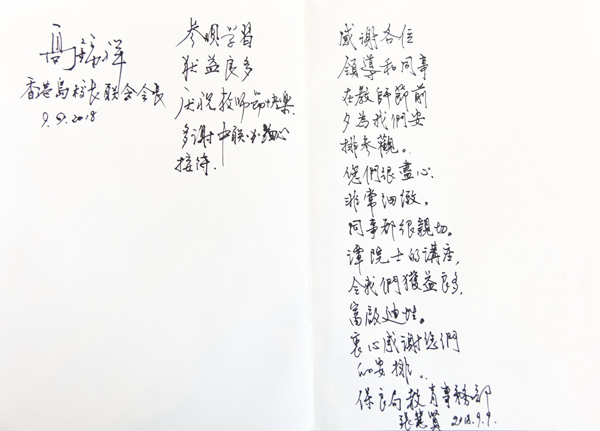 參觀學習
獲益良多
慶祝教師節快樂
多謝中联办熱心
接待.
香港島校長联会会長
9.9.2018
感謝各位
領導和同事
在教師節前
夕為我們安
排參觀。
您們很盡心.
非常細緻。
同事都很親切。
譚院士的講座,
令我們獲益良多,
富啟迪性。
衷心感謝您們
的安排。
保良局教育事務部
2018.9.9.